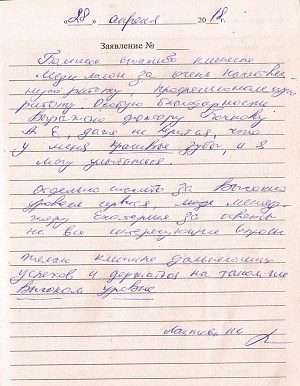 «28» апреля 2018г.
Заявление №
Большое спасибо клинике
за очень качествен
ную работу. Профессиональную
работу. Особую благодарность
Выражаю доктору
А. Е., даже не верится, что
у меня красивые зубы, и я
могу улыбаться.
Отдельно спасибо за Высокий
уровень сервиса, менед-
жеру Екатерине за ответы
на все интересующие вопросы
Желаю клинике дальнейших
успехов и держаться на таком же
Высоком уровне